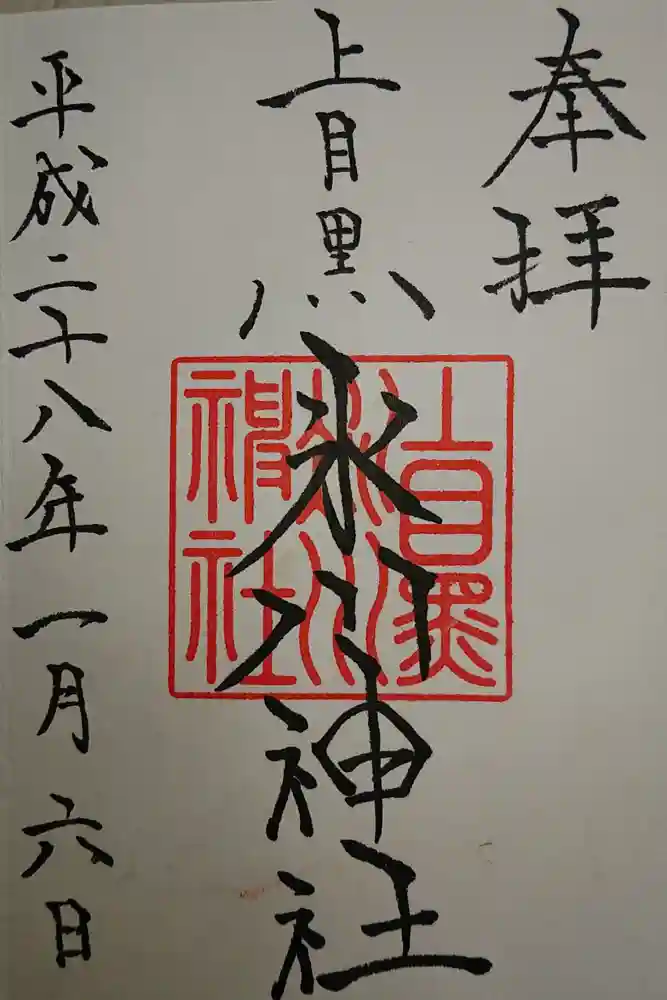 奉拝
上目黒氷川神社
上目黒
氷川
神社
平成二十八年一月六日